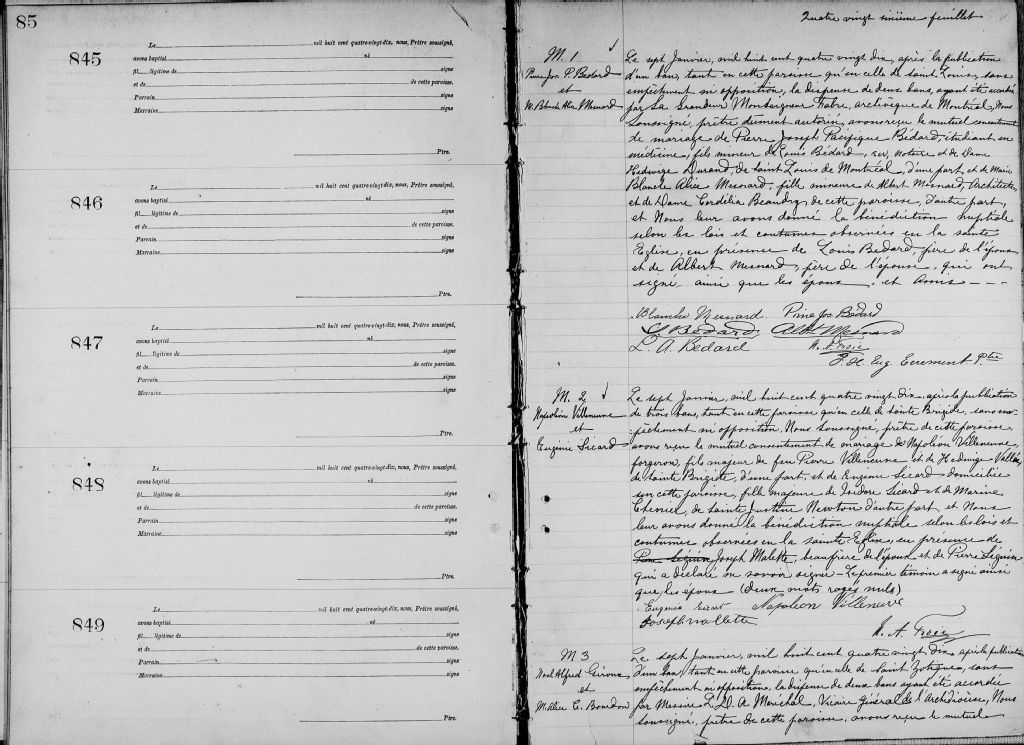 85
845
Le mil huit cent quatre-vingt-dix, nous, Prêtre soussigné,
avons baptisé né
fil légitime de signe
et de de cette paroisse.
Parrain signe
Marraine signe
Ptre.
846
Le mil huit cent quatre-vingt-dix, nous, Prêtre soussigné,
avons baptisé né
fil légitime de signe
et de de cette paroisse.
Parrain signe
Marraine signe
Ptre.
847
Le mil huit cent quatre-vingt-dix, nous, Prêtre soussigné,
avons baptisé né
fil légitime de signe
et de de cette paroisse.
Parrain signe
Marraine signe
Ptre.
848
Le mil huit cent quatre-vingt-dix, nous, Prêtre soussigné,
avons baptisé né
fil légitime de signe
et de de cette paroisse.
Parrain signe
Marraine signe
Ptre.
849
Le mil huit cent quatre-vingt-dix, nous, Prêtre soussigné,
avons baptisé né
fil légitime de signe
et de de cette paroisse.
Parrain signe
Marraine signe
Ptre.
Quatre vingt sixième feuillet
M. 1
Pierre Jos. P. Bédard
et
M. Blanche Alice Mesnard
Le sept Janvier, mil huit cent quatre vingt dix, après la publication
d'un ban, tant en cette paroisse qu'en celle de Saint Louis, sans
empêchement ni opposition, la dispense de deux bans, ayant été accordée
par Sa Grandeur Monseigneur Fabre, archevêque de Montréal, Nous
soussigné, prêtre dûment autorisé, avons reçu le mutuel consentement
de mariage de Pierre Joseph Pacifique Bédard, étudiant en
médecine, fils mineur de Louis Bédard, Notaire et de Dame
Hedwige Durand, de Saint Louis de Montréal, d'une part, et de Marie
Blanche Alice Mesnard, fille mineure de Albert Mesnard, Architecte
et de Dame Cordélia Beaudry de cette paroisse, d'autre part,
et Nous leur avons donné la bénédiction nuptiale
selon les lois et coutumes observées en la sainte
Eglise, en présence de Louis Bédard, père de l'époux
et de Albert Mesnard, père de l'épouse, qui ont
signé ainsi que les époux, et amis - - -
Blanche Mesnard. Pierre Jos Bédard
Ls Bédard Albt Mesnard
L. A. Bédard
P. H. Eug. Ecrement Ptre
M. 2
Napoléon Villeneuve
et
Eugénie Sicard
Le sept Janvier, mil huit cent quatre vingt dix, après la publication
de trois bans, tant en cette paroisse qu'en celle de Sainte Brigide, sans em-
pêchement ni opposition, Nous soussigné, prêtre de cette paroisse,
avons reçu le mutuel consentement de mariage de Napoléon Villeneuve,
forgeron, fils majeur de feu Pierre Villeneuve et de Hedwige Vallée,
de Sainte Brigide, d'une part, et de Eugénie Sicard domiciliée
en cette paroisse, fille majeure de Isidore Sicard et de Marine
Chenier, de Sainte Justine Newton d'autre part, et Nous
leur avons donné la bénédiction nuptiale selon les lois et
coutumes observées en la sainte Eglise, en présence de
Pierre Séguin Joseph Malette, beaufrère de l'époux et de Pierre Séguin
qui a déclaré ne savoir signer. Le premier témoin a signé ainsi
que les époux (deux mots rayés nuls)
Eugénie Sicart Napoléon Villeneuve
Joseph Mallette
M 3
Noel Alfred Giroux
et
M. Alice C. Bourdon
Le sept Janvier, mil huit cent quatre vingt dix, après la publication
d'un ban, tant en cette paroisse qu'en celle de Saint Zotique, sans
empêchement ni opposition, la dispense de deux bans ayant été accordée
par Messire L. D. A. Maréchal, Vicaire Général de l'Archidiocèse, Nous
soussigné, prêtre de cette paroisse, avons reçu le mutuel